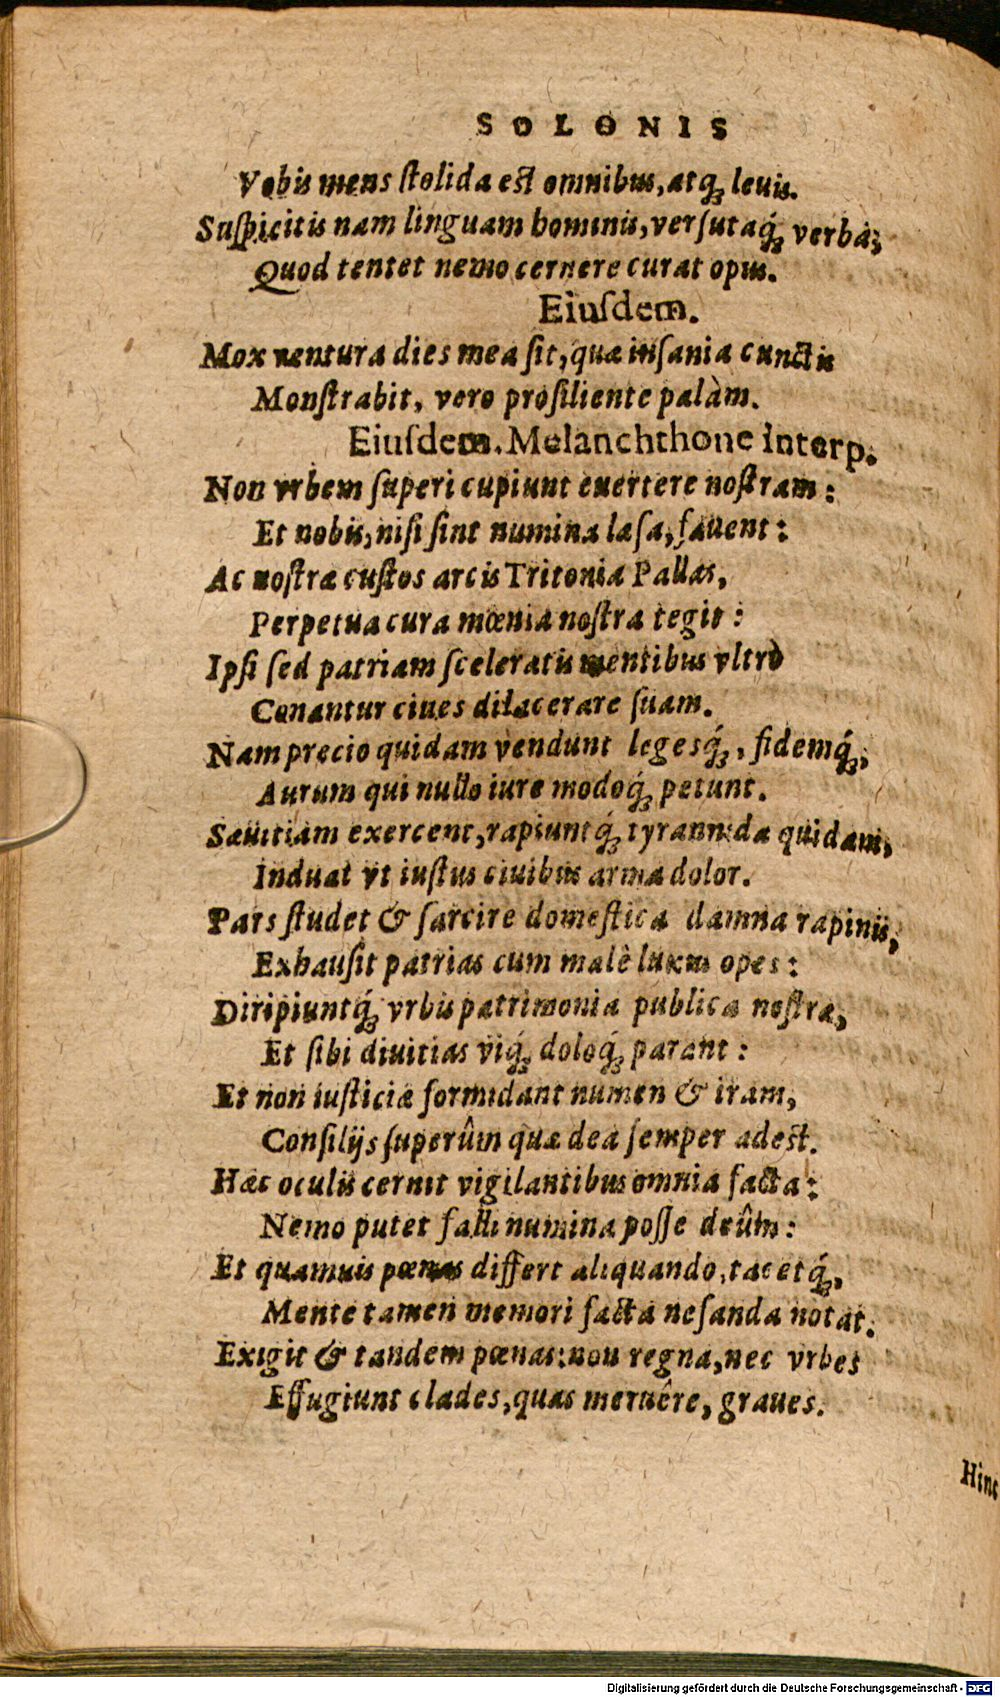 SOLONIS
Vobis mens stolida est omnibus, atq́; leuis.
Suspicitis nam linguam hominis, versutaq́; verba;
Quod tentet nemo cernere curat opus.
Eiusdem.
Mox uentura dies mea sit, quæ insania cunctis
Monstrabit, vero prosiliente palàm.
Eiusdem. Melanchthone interp.
Non vrbem superi cupiunt euertere nostram:
Et nobis, nisi sint numina læsa, fauent:
Ac nostræ custos arcis Tritonia Pallas,
Perpetua cura mœnia nostra tegit:
Ipsi sed patriam sceleratis mentibus vltrò
Conantur ciues dilacerare suam.
Nam precio quidam vendunt legesq́;, fidemq́;,
Aurum qui nullo iure modoq́; petunt.
Sæuitiam exercent, rapiuntq́; tyrannida quidam,
Induat vt iustus ciuibus arma dolor.
Pars studet & sarcire domestica damna rapinis,
Exhausit patrias cum malè luxus opes:
Diripiuntq́; vrbis patrimonia publica nostræ,
Et sibi diuitias viq́; doloq́; parant:
Et non iusticiæ formidant numen & iram,
Consilijs superûm quæ dea semper adest.
Hæc oculis cernit vigilantibus omnia facta:
Nemo putet falli numina posse deûm:
Et quamuis pœnas differt aliquando, tacetq́;,
Mente tamen memori facta nefanda notat.
Exigit & tandem pœnas: non regna, nec vrbes
Effugiunt clades, quas meruêre, graues.
Hinc
Digitalisierung gefördert durch die Deutsche Forschungsgemeinschaft - DFG